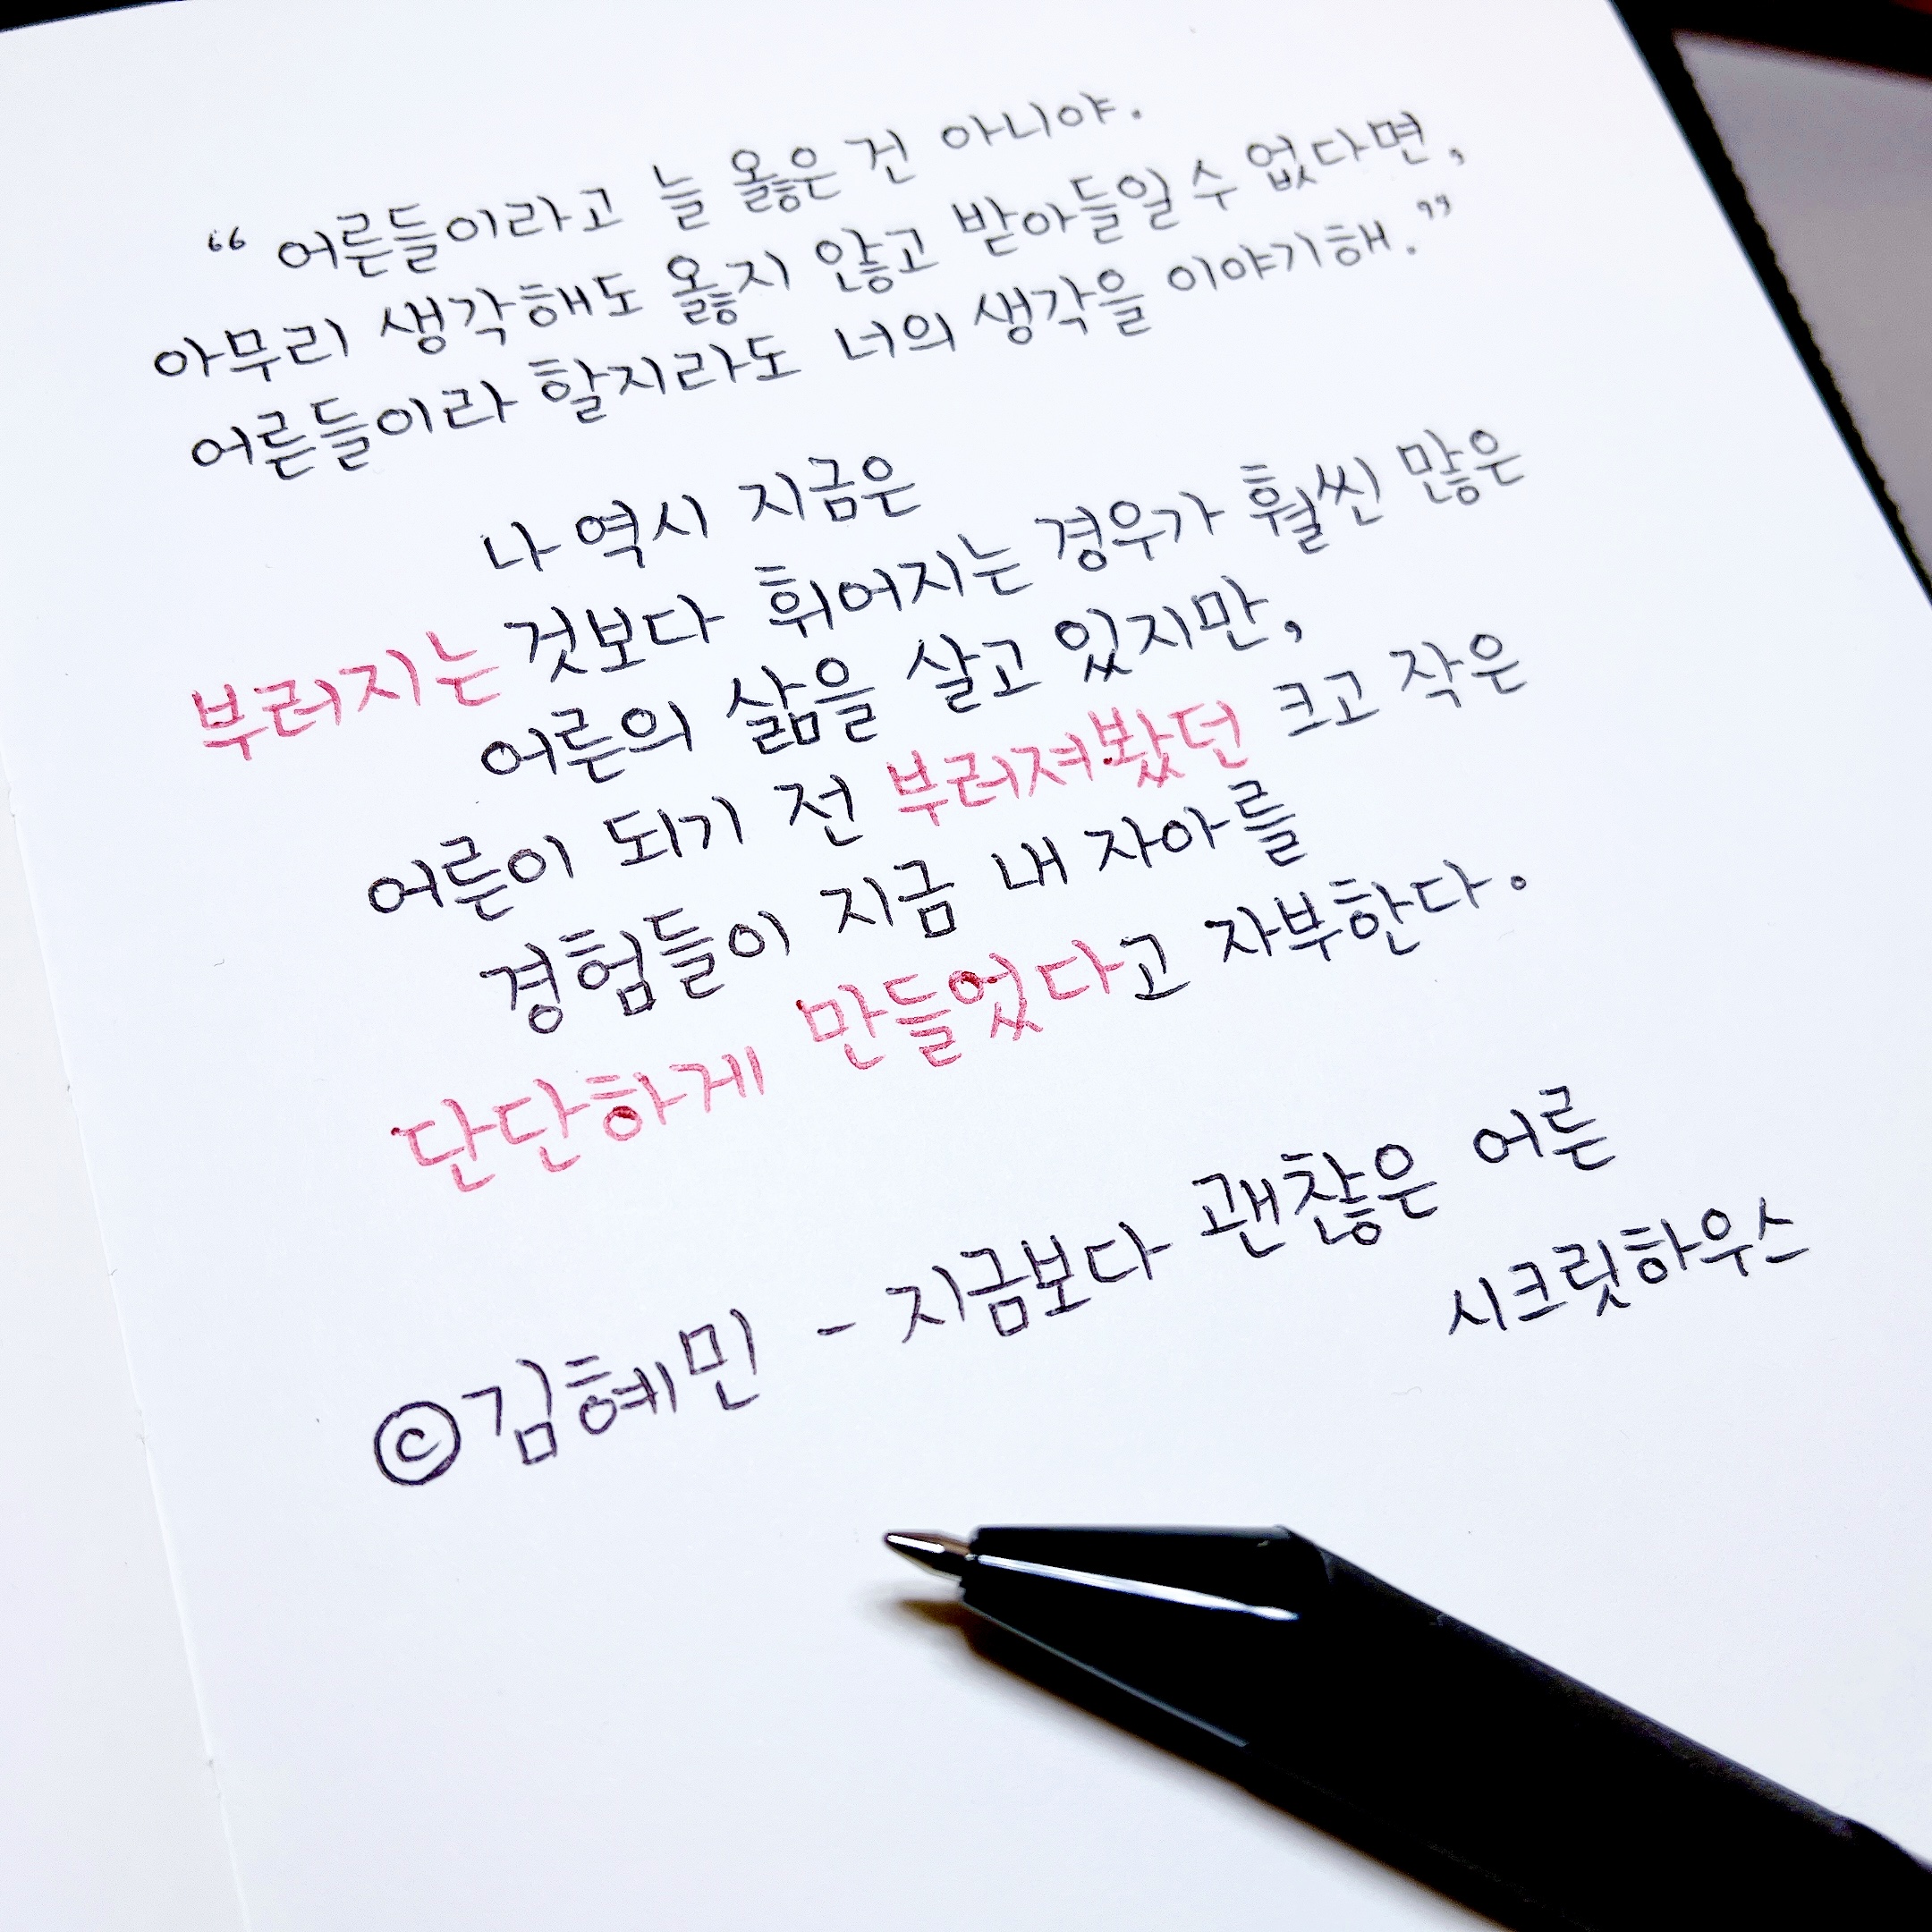 “ 어른들이라고 늘 옳은 건 아니야.
아무리 생각해도 옳지 않고 받아들일 수 없다면,
어른들이라 할지라도 너의 생각을 이야기해.”
나 역시 지금은
부러지는 것보다 휘어지는 경우가 훨씬 많은
어른의 삶을 살고 있지만,
어른이 되기 전 부러져봤던 크고 작은
경험들이 지금 내 자아를
단단하게 만들었다고 자부한다.
©김혜민 - 지금보다 괜찮은 어른
시크릿하우스